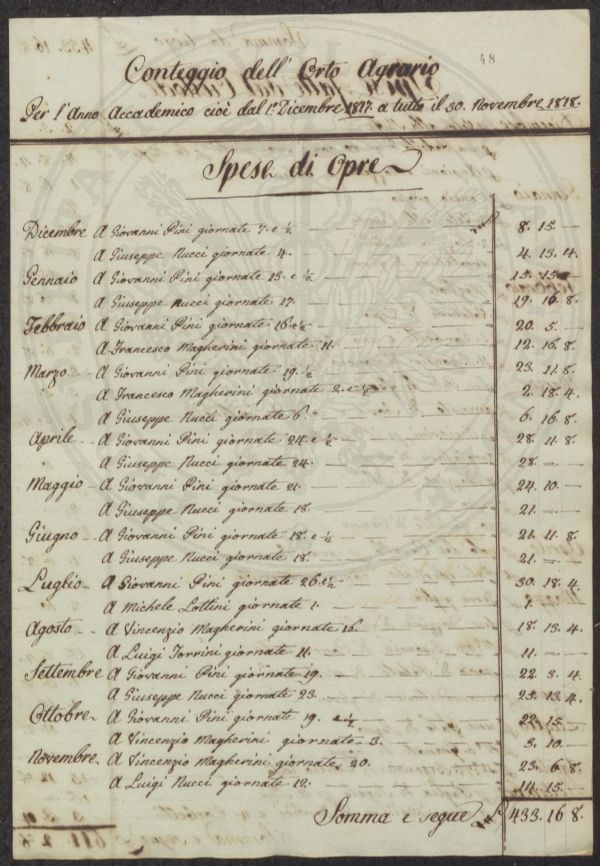 48
Conteggio dell' Orto Agrario
Per l'Anno Accademico cioè dal 1º Dicembre 1817. a tutto il 30. Novembre 1818.
Spese di Opre
Dicembre A Giovanni Pini giornate 7. e ½ 8. 15. —
A Giuseppe Nucci giornate 4. 4. 13. 4.
Gennaio A Giovanni Pini giornate 13. e ½ 15. 15 —
A Giuseppe Nucci giornate 17. 19. 16. 8.
Febbraio A Giovanni Pini giornate 16. e ½ 20. 5. —
A Francesco Magherini giornate 11. 12. 16. 8.
Marzo A Giovanni Pini giornate 19. ½ 23. 11. 8.
A Francesco Magherini giornate 2. e ½ 2. 18. 4.
A Giuseppe Nucci giornate 6. 6. 16. 8.
Aprile A Giovanni Pini giornate 24. e ½ 28. 11. 8.
A Giuseppe Nucci giornate 24. 28. — —
Maggio A Giovanni Pini giornate 21. 24. 10. —
A Giuseppe Nucci giornate 18. 21. — —
Giugno A Giovanni Pini giornate 18. e ½ 21. 11. 8.
A Giuseppe Nucci giornate 18. 21. — —
Luglio A Giovanni Pini giornate 26. e ½ 30. 18. 4.
A Michele Lottini giornate 1. 1. — —
Agosto A Vincenzio Magherini giornate 16. 18. 13. 4.
A Luigi Torrini giornate 11. 11. — —
Settembre A Giovanni Pini giornate 19. 22. 3. 4.
A Giuseppe Nucci giornate 23. 23. 13. 4.
Ottobre A Giovanni Pini giornate 19. e ½ 22. 15. —
A Vincenzio Magherini giornate 3. 3. 10. —
Novembre A Vincenzio Magherini giornate 20. 23. 6. 8.
A Luigi Nucci giornate 12. 14. 15. —
Somma e segue 433. 16. 8.